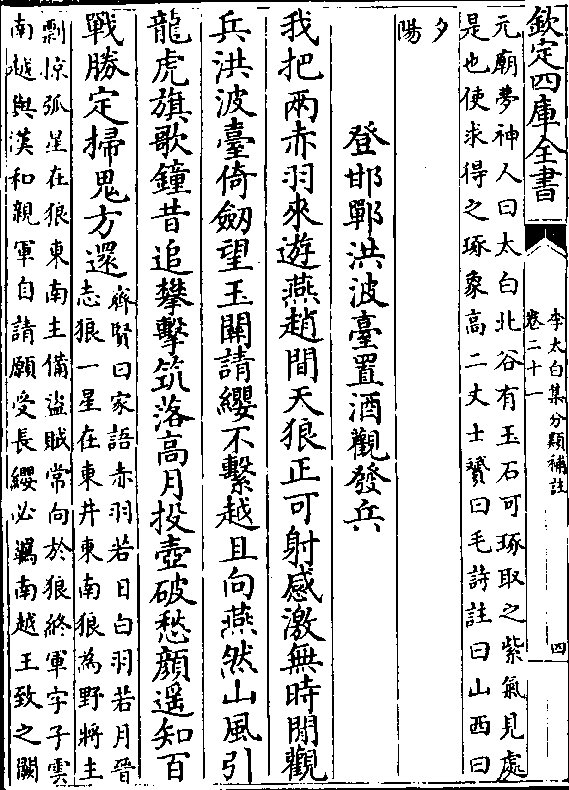 欽定四庫全書
李太白集分類補註
卷二十一
四
元廟夢神人曰太白北谷有玉石可琢取之紫氣見處
是也使求得之琢象高二丈士贇曰毛詩註曰山西曰
夕
陽
登邯鄲洪波臺置酒觀發兵
我把兩赤羽來遊燕趙間天狼正可射感激無時閒觀
兵洪波臺倚劒望玉關請纓不繫越且向燕然山風引
龍虎旗歌鐘昔追攀擊筑落高月投壺破愁顔遥知百
戰勝定掃鬼方還
齊賢曰家語赤羽若日白羽若月晉
志狼一星在東井東南狼為野將主
剽惊弧星在狼東南主備盜賊常向於狼終軍字子雲
南越與漢和親軍自請願受長纓必羈南越王致之闕